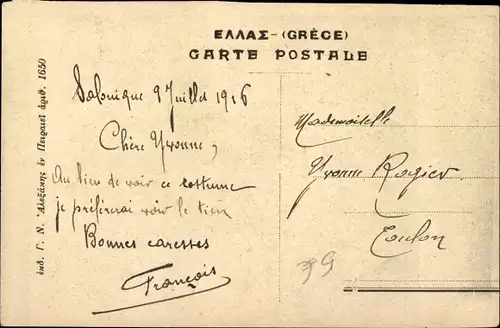 ΕΛΛΑΣ-(GRÈCE)
CARTE POSTALE
ἐκδ. Γ. Ν. Ἀλεξάκης ἐν Πειραιεῖ ἀριθ. 1650
Salonique 9 Juillet 1916
Chère Yvonne,
Au lieu de voir ce costume
je préférerai voir le tien
Bonnes caresses
François
Mademoiselle
Yvonne Rogier
Toulon
39